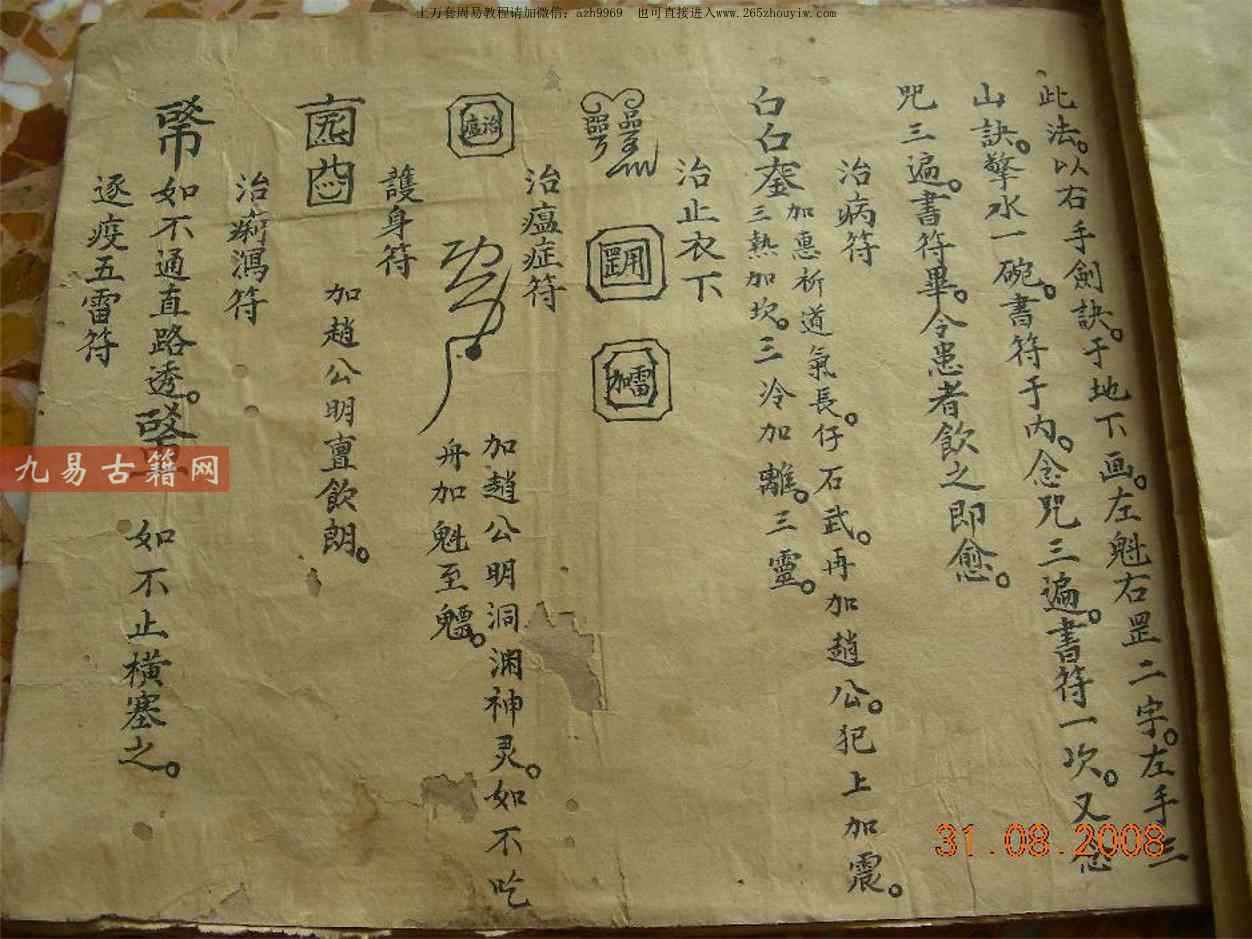 上万套周易教程请加微信：azh9969 也可直接进入www.265zhouyiw.com
此法。以右手劍訣。于地下画。左魁右罡二字。左手三
山訣。擎水一碗。書符于内。念咒三遍。書符一次。又念
咒三遍。書符畢。令患者飲之即愈。
治病符
加惠祈道氣長。仔石武。再加趙公。犯上加震。
三熱加坎。三冷加離。三靈。
治止衣下
治瘟症符
治瘟
加趙公明洞渊神灵。如不吃
舟加魁至
護身符
加趙公明亶飲朗。
治痢瀉符
如不通直路透。
如不止橫塞之。
逐疫五雷符
九易古籍网
31.08.2008